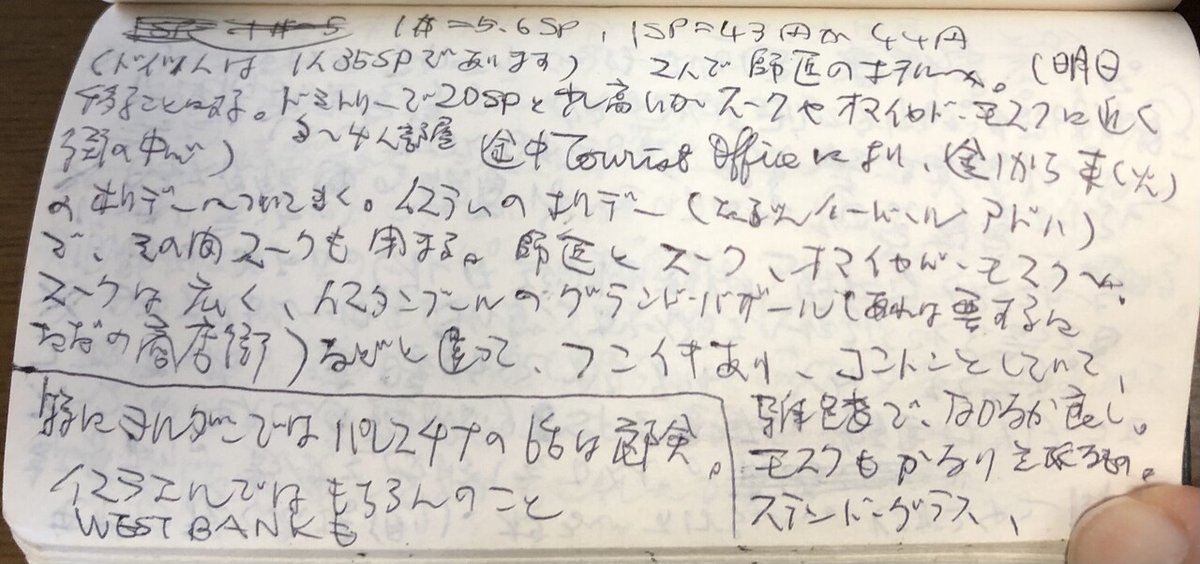 1$=5.6SP, 1SP=43円か44円
(ドイツ人は 1人35SPであります) 師匠のホテルへ。(明日
ことにする。ドミトリーで20SPと少し高いがスークやオマイヤド・モスクに近く
街の中心) 3〜4人部屋 途中Tourist Officeにより、金から来(火)
のホリデーについてきく。イスラムのホリデー(たぶんイードゥル アドハ)
で、その間スークも閉まる。師匠とスーク、オマイヤド・モスクへ。
スークは広く、イスタンブールのグランド・バザール(あれは要するに
ただの商店街)などと違って、フンイキあり、コントンとしていて、
雑多で、なかなか良し。
モスクもかなり立派なもの。
ステンドグラス、
特にヨルダンではパレスチナの話は危険。
イスラエルではもちろんのこと
WEST BANKも